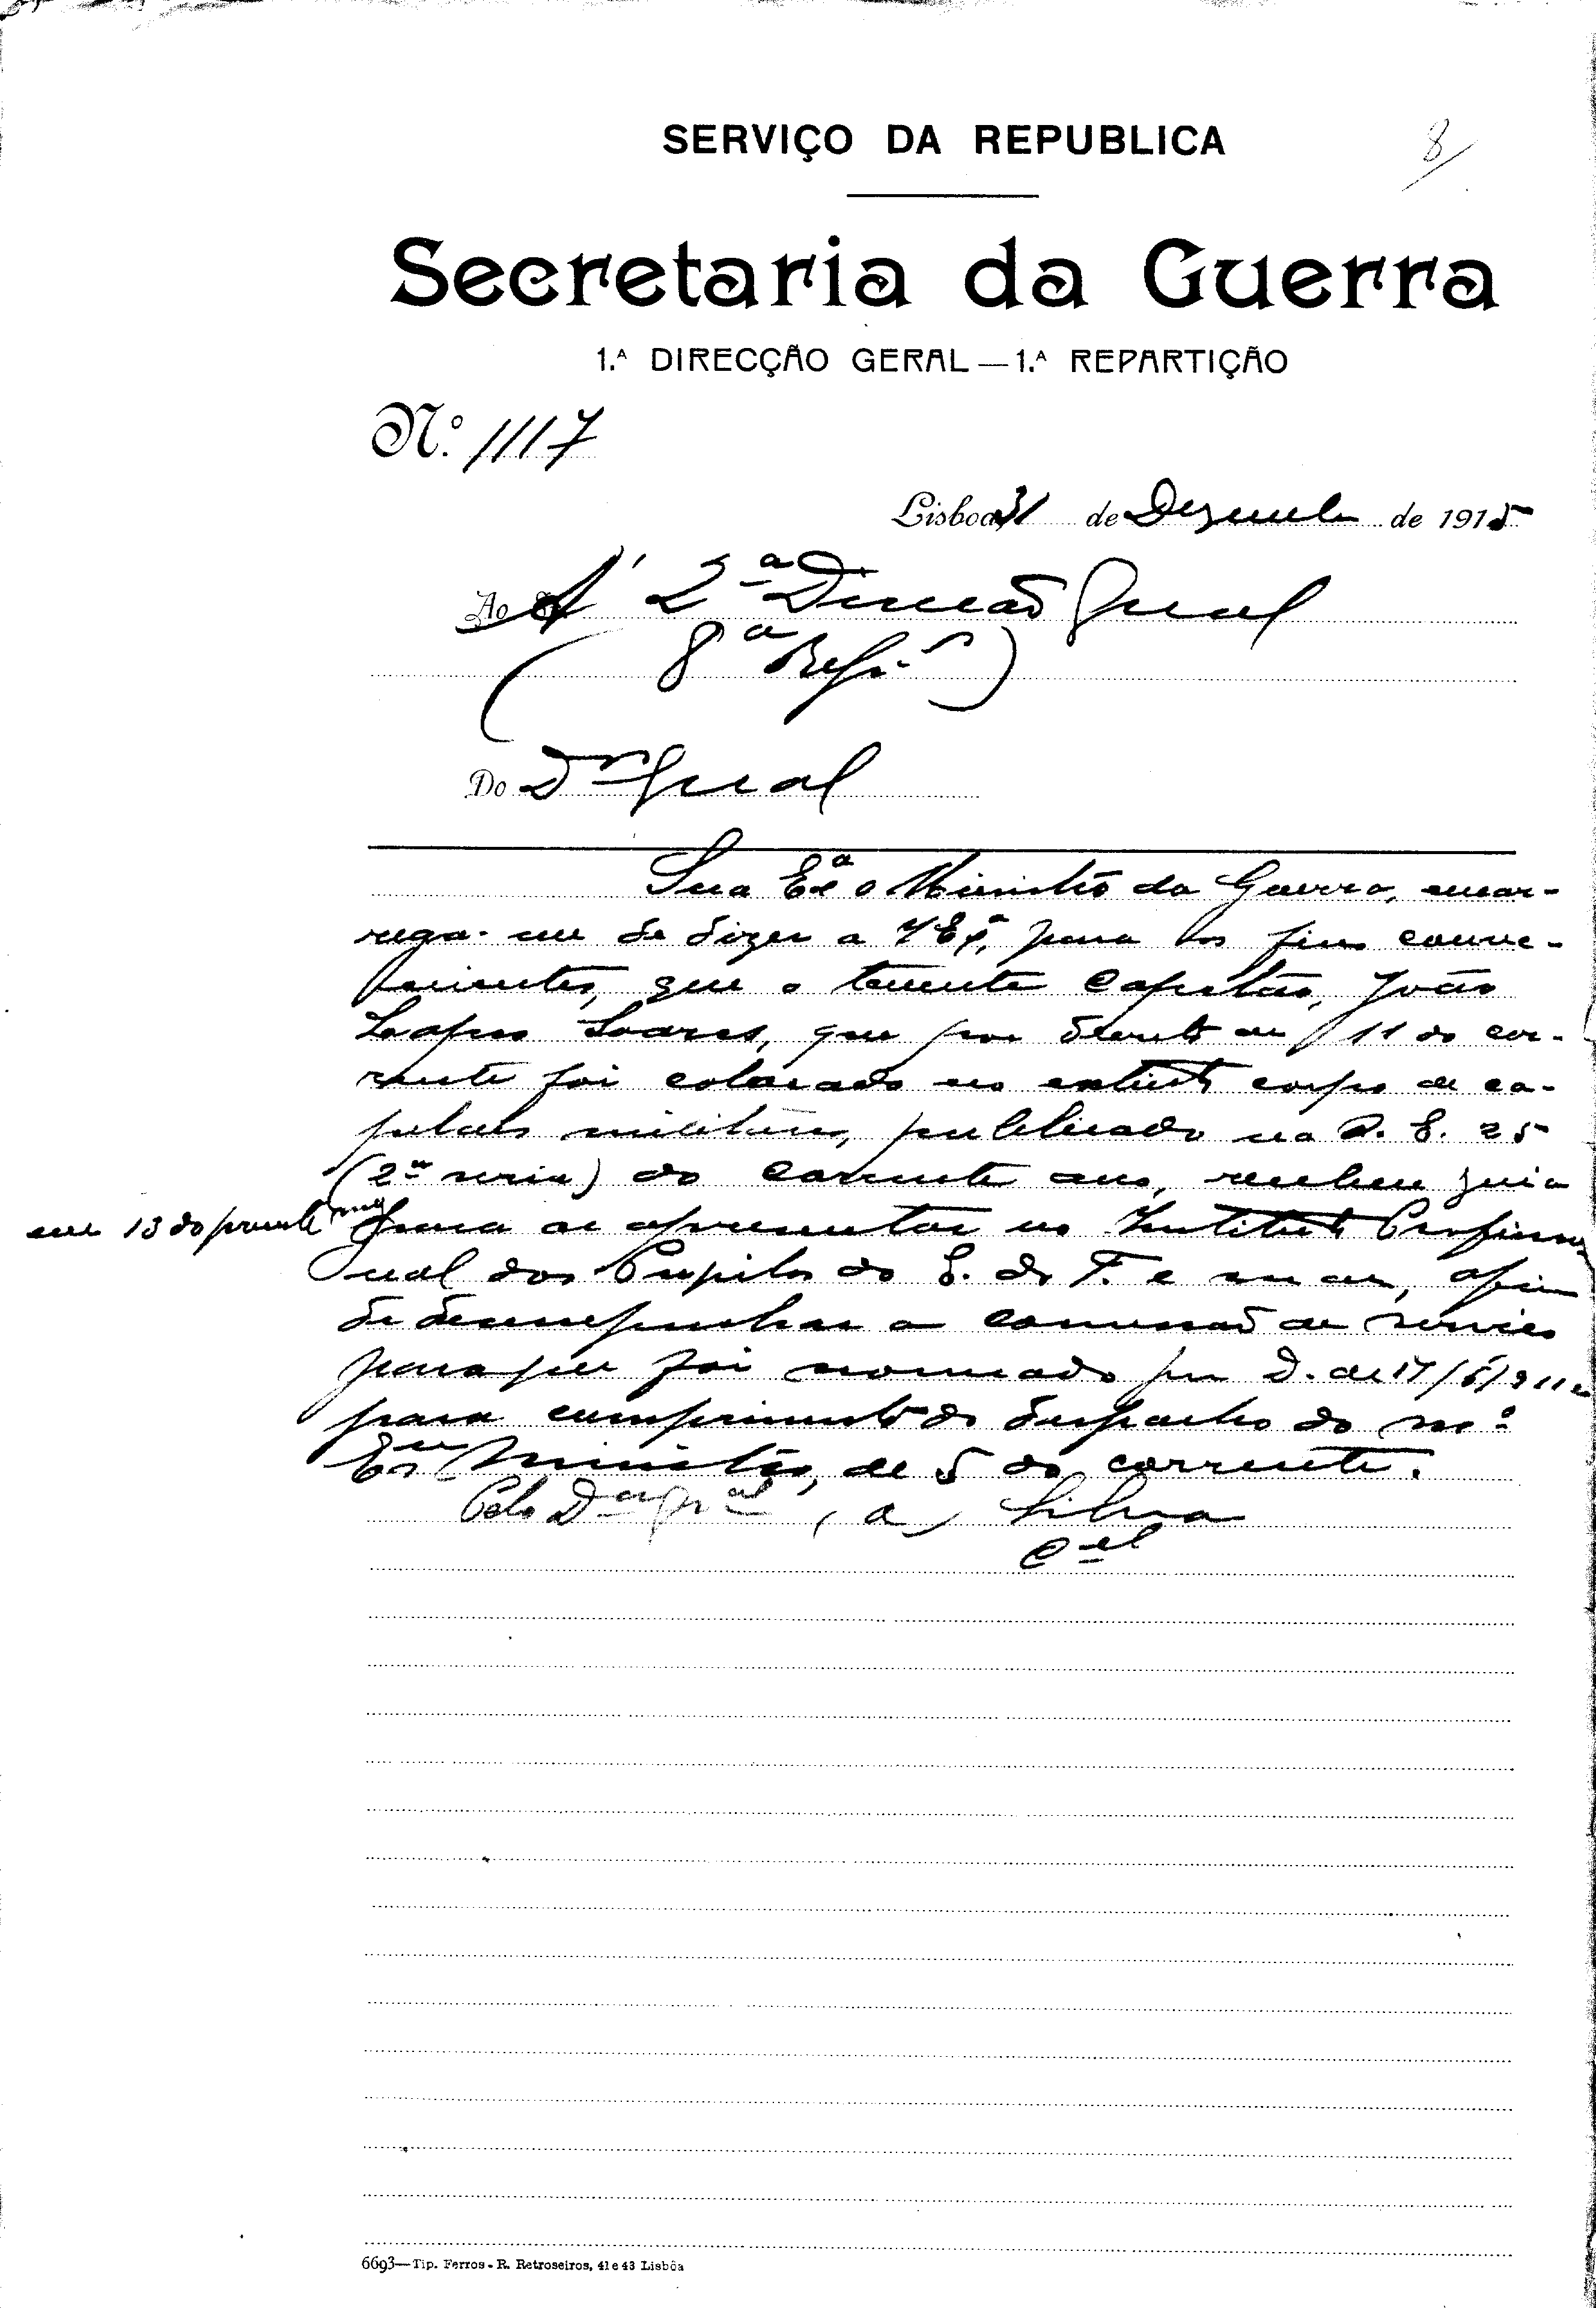 8
SERVIÇO DA REPUBLICA
Secretaria da Guerra
1.ª DIRECÇÃO GERAL — 1.ª REPARTIÇÃO
N.º 1117
Lisboa 31 de Dezembro de 1915
Ao A' 2.ª Direcção Geral
(8.ª Repãº)
Do Dr Geral
Sua Exª o Ministro da Guerra, encar-
rega-me de dizer a V Exª, para os fins conve-
nientes, que o tenente capelão, João
Lopes Soares, que por decreto de 11 do cor-
rente foi colocado no extinto corpo de ca-
pelães militares, publicado na O. E. 25
(2ª serie) do corrente ano, recebeu guia
em 13 do presente mez para se apresentar no Instituto Profissio-
nal dos Pupilos do E. de T. e mar, afim
de desempenhar a comissão de serviço
para que foi nomeado por D. de
para cumprimento do despacho do mº
Exº Ministro, de 5 do corrente.
Pelo Dor gral, a) Silva
Cel
6693—Tip. Ferros - R. Retroseiros, 41 e 43 Lisbôa